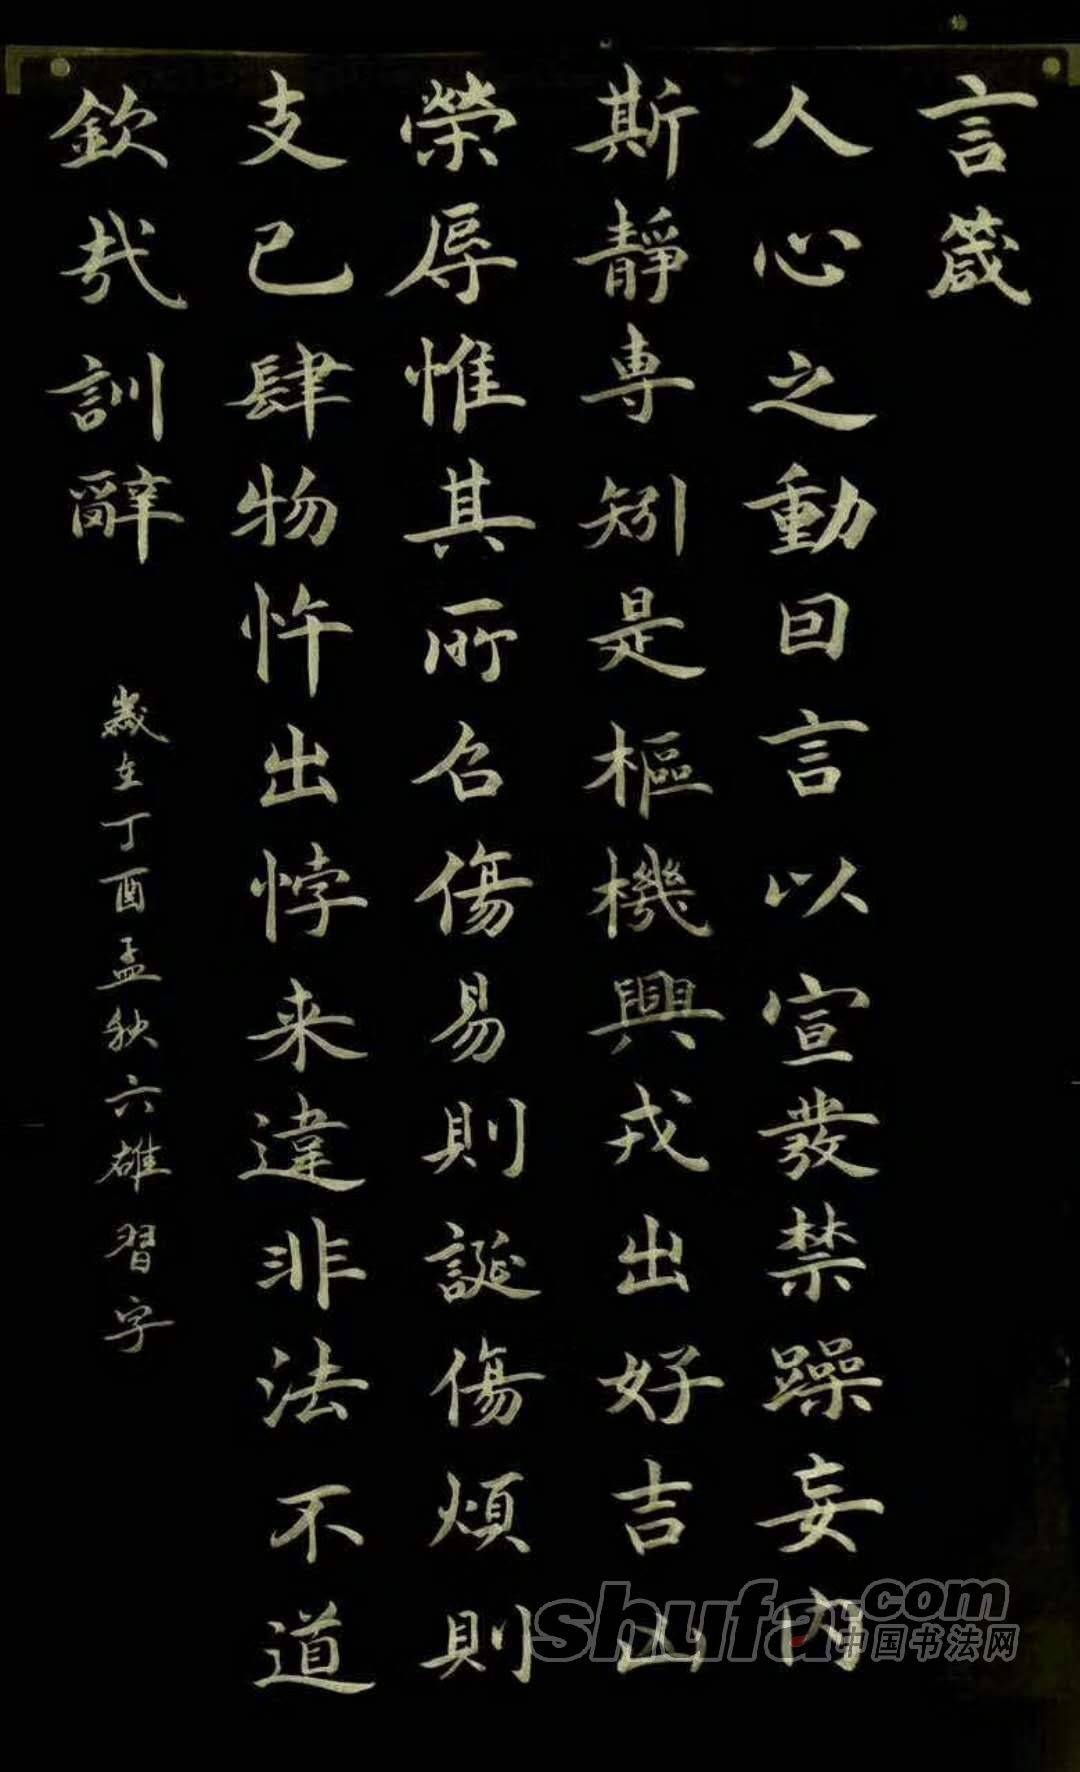 言箴
人心之動因言以宣發禁躁妄內
斯靜專矧是樞機興戎出好吉凶
榮辱惟其所召傷易則誕傷煩則
支己肆物忤出悖来違非法不道
欽哉訓辭
歲在丁酉孟秋六雄習字
shufa.com
中国书法网